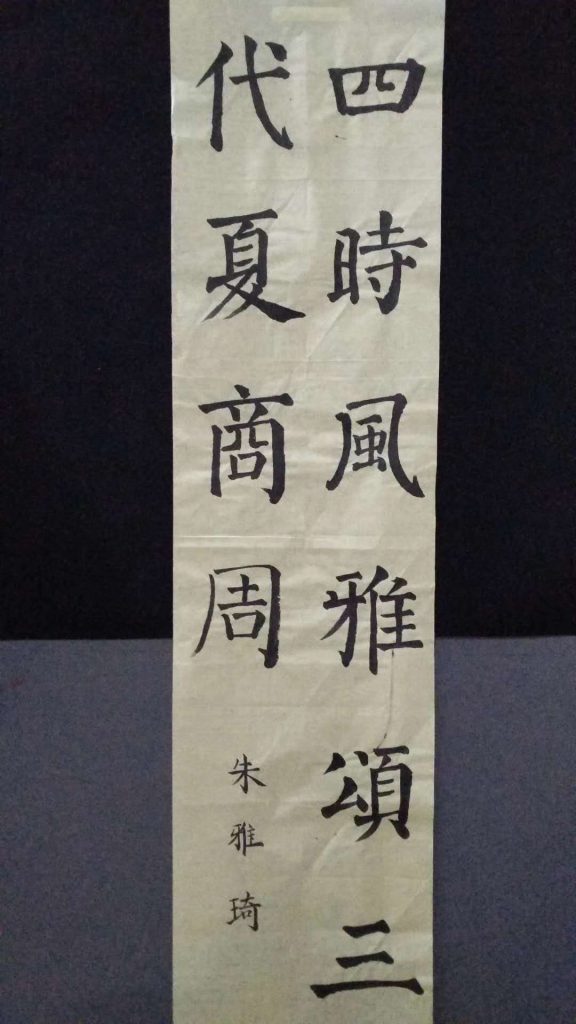 四時風雅頌三
代夏商周
朱雅琦